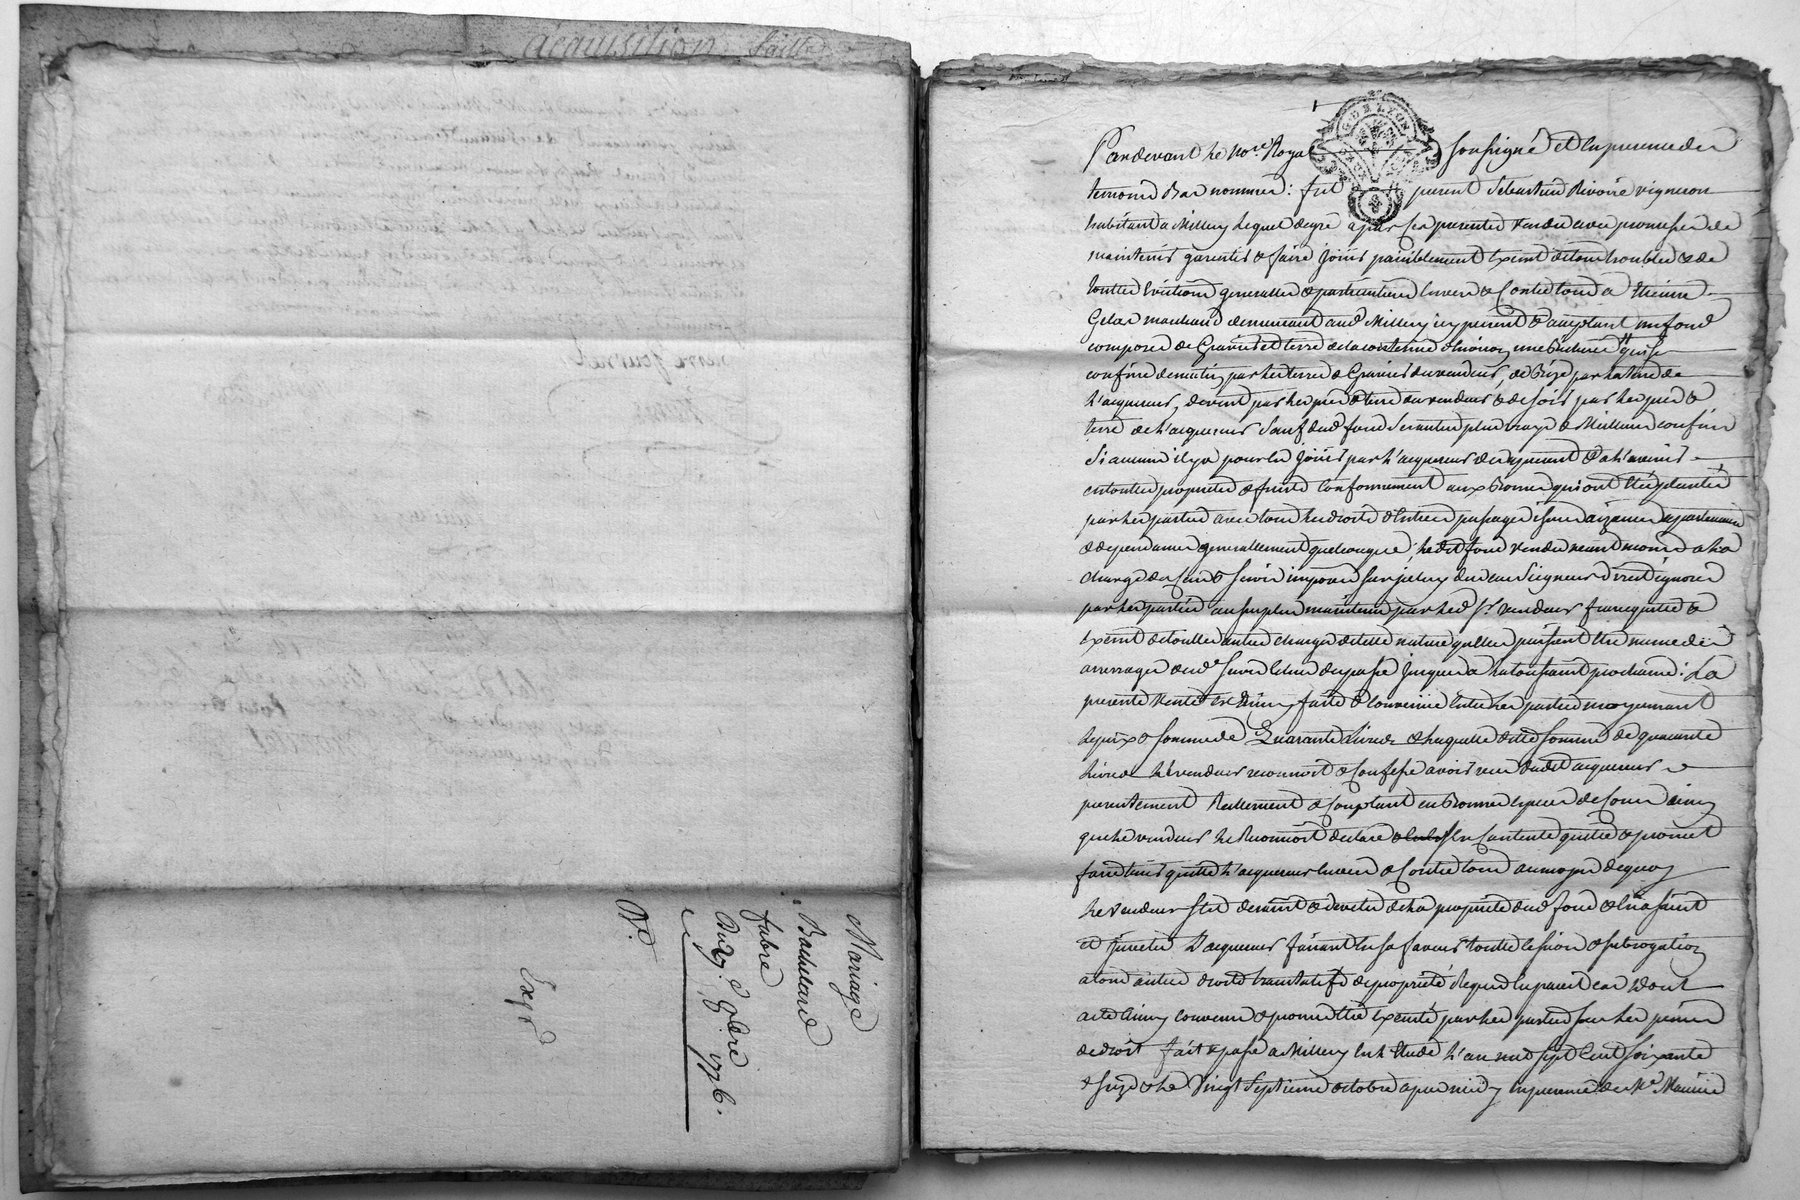 acquisition
Mariage
Bachelard
fabre
Du 27e 8bre 1776.
Ve
Expé
GEN DE LYON
Pardevant le Nore Royal soussigné et en presence des
temoins Bas nommes: fut present Sebastien Rivoire vigneron
habitant a Millery lequel de gre a par ces presentes vendu avec promesse de
maintenir garentir & faire jouir paisiblement exemt de tous troubles & de
touttes evictions generalles & particulieres envers & contre tous a Etienne
Gelas marchand demeurant aud Millery icy present & acceptant un fond
composé de Gravier et terre de la contenue d'environ une Bicheree
confiné de matin par les terre & Gravier du vendeur, de Bize par la terre de
l'acquereur, de vent par les pred & terre du vendeur & de soir par les pred &
terre de l'acquereur sauf dud fond ses autres plus vrays & meilleurs confins
si aucuns il y a pour en jouir par l'acquereur des a present & a l'avenir
en toutte proprieté & fruits conformement aux Bornes qui ont été plantés
par les parties avec tous les droits d'entrée passages issues aizances apartenances
& dependances generallement quelconques, ledit fond vendu neant moins a la
charge du cens & servis imposé sur iceluy du au Seigneur direct ignoré
par les parties au surplus maintenu par led Sr vendeur franc quitte &
exemt de touttes autres charges de telle nature qu'elles puissent être meme des
arrerages dud servis echus du passé jusques a la toussaint prochaine: La
presente vente est ainsy faitte & convenue entre les parties moyennant
le prix & somme de Quarante Livres & laquelle ditte somme de quarante
livres le vendeur reconnoit & confesse avoir reçu dudit acquereur
presentement reellement & comptant en Bonnes especes de cours ainsy
que le vendeur le reconnoit declare s'en contente quitte & promet
faire tenir quitte l'acquereur envers & contre tous au moyen de quoy
le vendeur s'est demis & devetu de la proprieté dud fond & en a saisi
et investi l'acquereur faisant en sa faveur toutte cession & subrogation
a tous autres droits translatifs de proprieté requis en pareil cas Dont
acte ainsy convenu & promis être executé par les parties sous les peines
de droit fait & passé a Millery en l'etude l'an mil sept cent soixante
& seize & le vingt septieme octobre apres midy en presence de Me Maurice